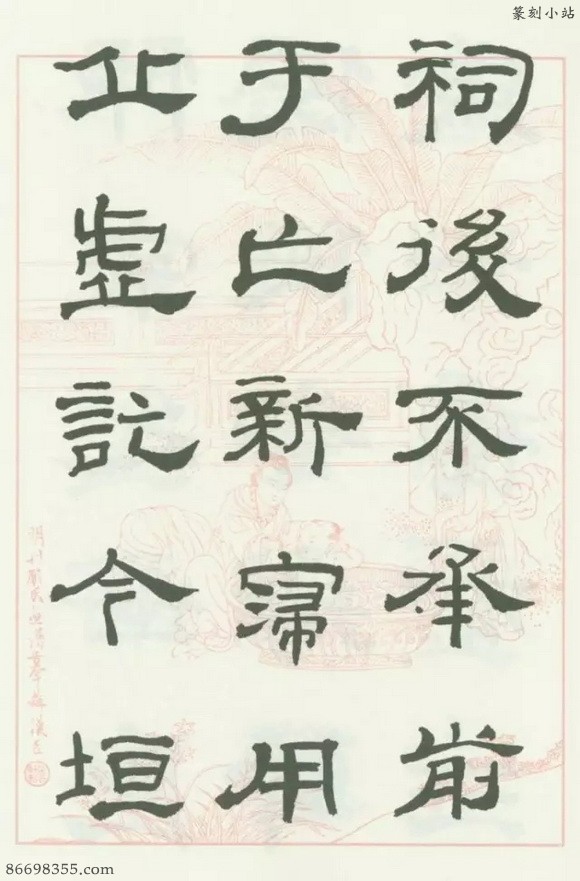 篆刻小站
祠後不承前
于亡新寖用
丘虛訖今垣
86698355.com